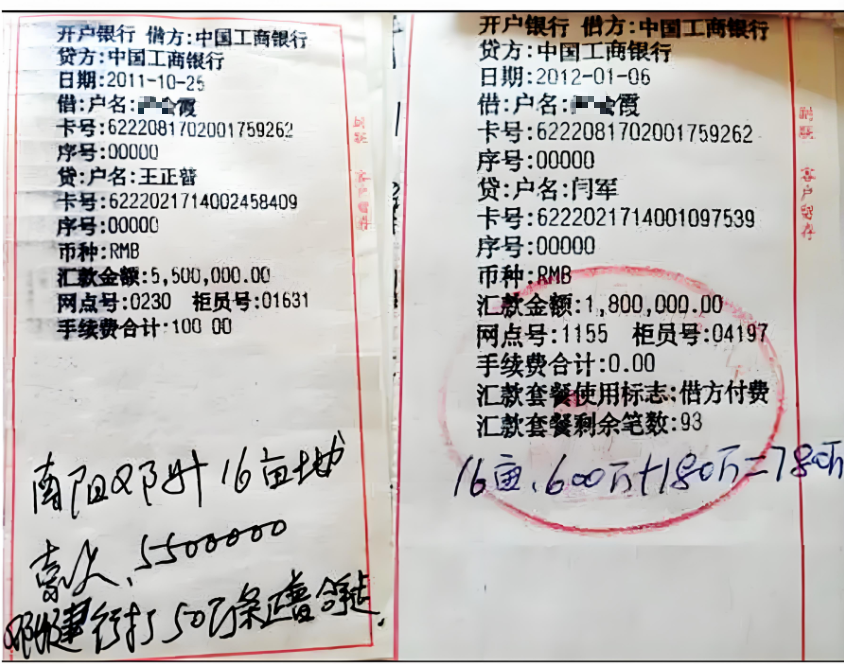 开户银行 借方:中国工商银行
贷方:中国工商银行
日期:2011-10-25
借:户名:霞
卡号:6222081702001759262
序号:00000
贷:户名:王正普
卡号:6222021714002458409
序号:00000
币种:RMB
汇款金额:5,500,000.00
网点号:0230 柜员号:01631
手续费合计:100 00
南阳邓州16亩地
款,5500000
建行打50万条正普拿走.
副联 客户留存
开户银行 借方:中国工商银行
贷方:中国工商银行
日期:2012-01-06
借:户名:霞
卡号:6222081702001759262
序号:00000
贷:户名:闫军
卡号:6222021714001097539
序号:00000
币种:RMB
汇款金额:1,800,000.00
网点号:1155 柜员号:04197
手续费合计:0.00
汇款套餐使用标志:借方付费
汇款套餐剩余笔数:93
16亩、600万+180万=780万
副联 客户留存